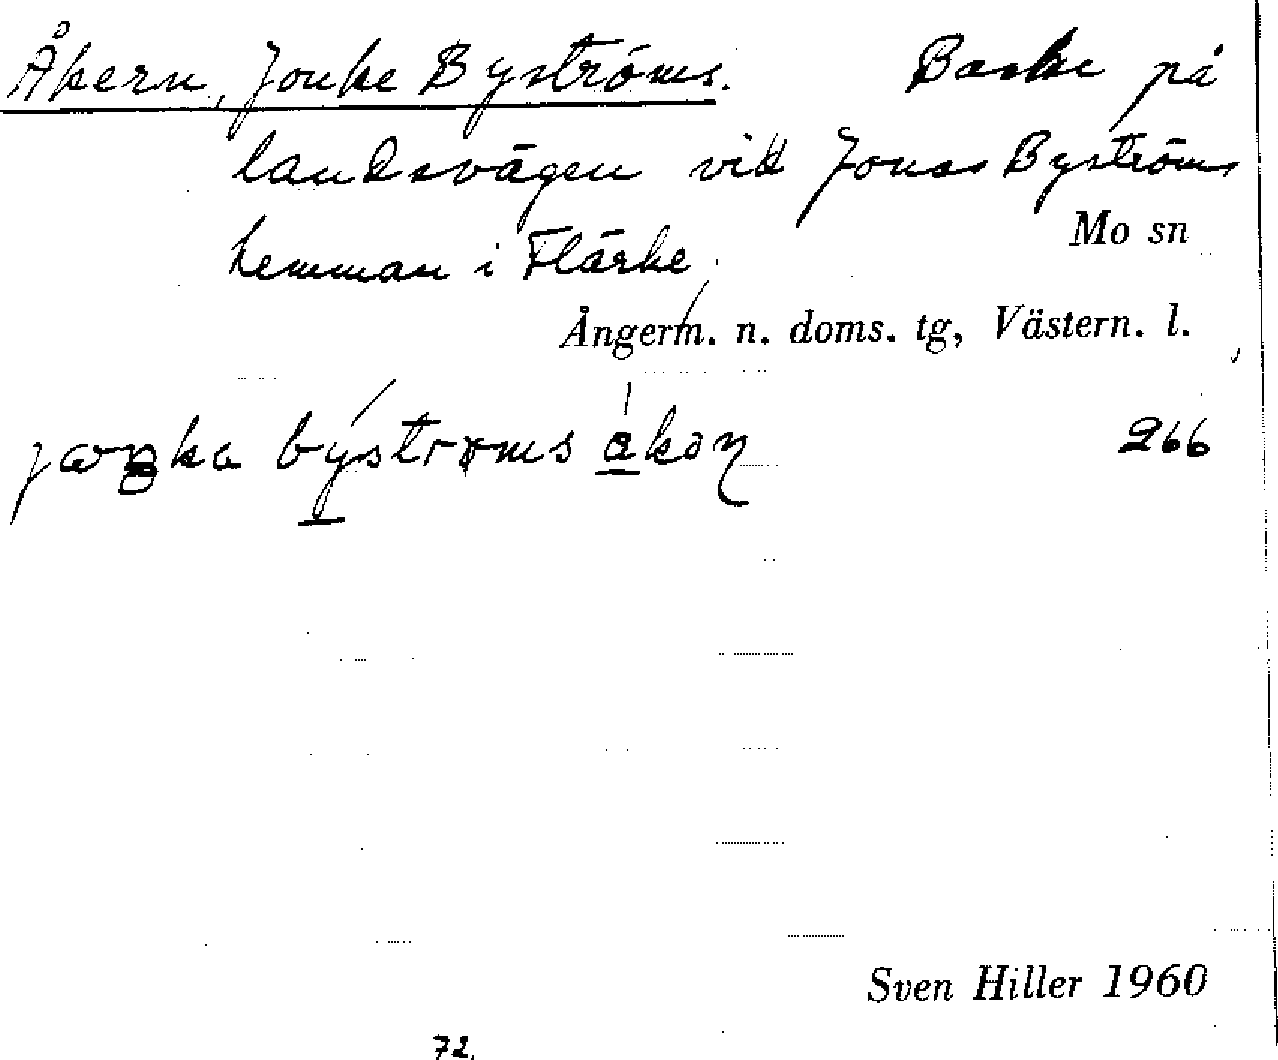 Åkern, Jonke Byströms. Backe på
landsvägen vid Jonas Byströms
hemman i Flärke.
Mo sn
Ångerm. n. doms. tg, Västern. l.
byströms åkən 266
Sven Hiller 1960
72.